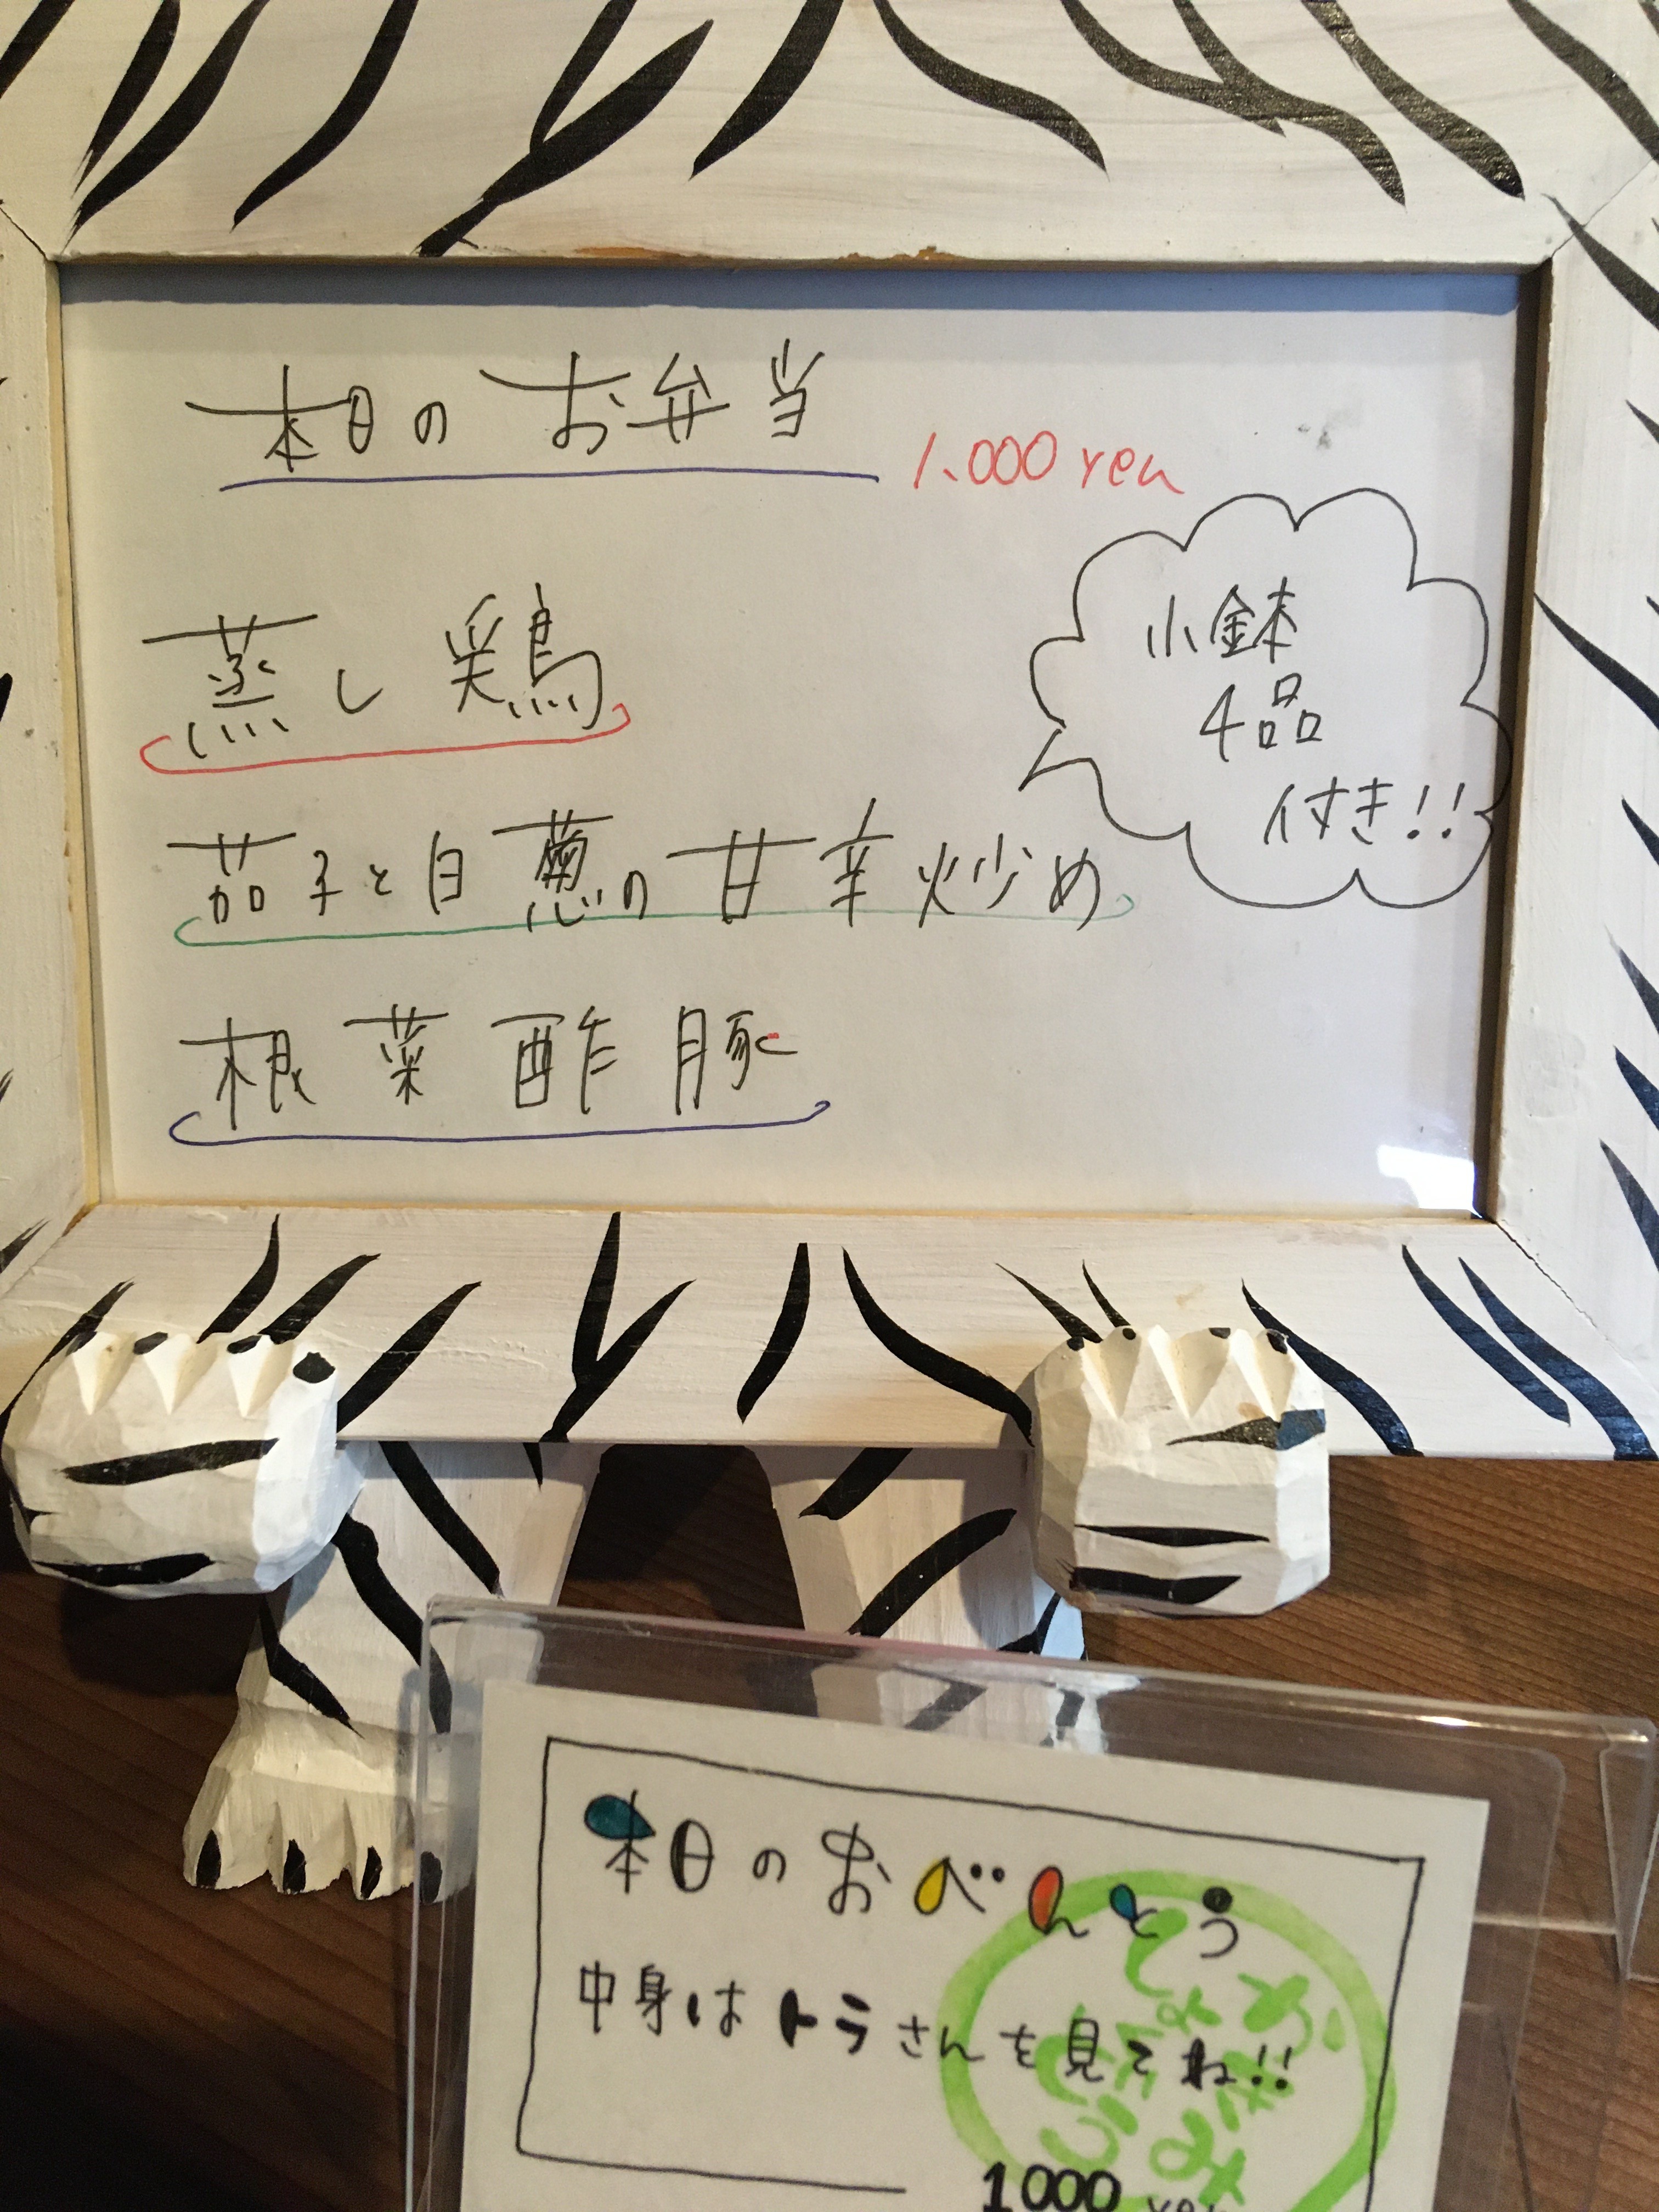 本日のお弁当
1.000 yen
蒸し鶏
茄子と白葱の甘辛炒め
根菜酢豚
小鉢
4品
付き!!
本日のおべんとう
中身はトラさんを見てね!!
1000 yen